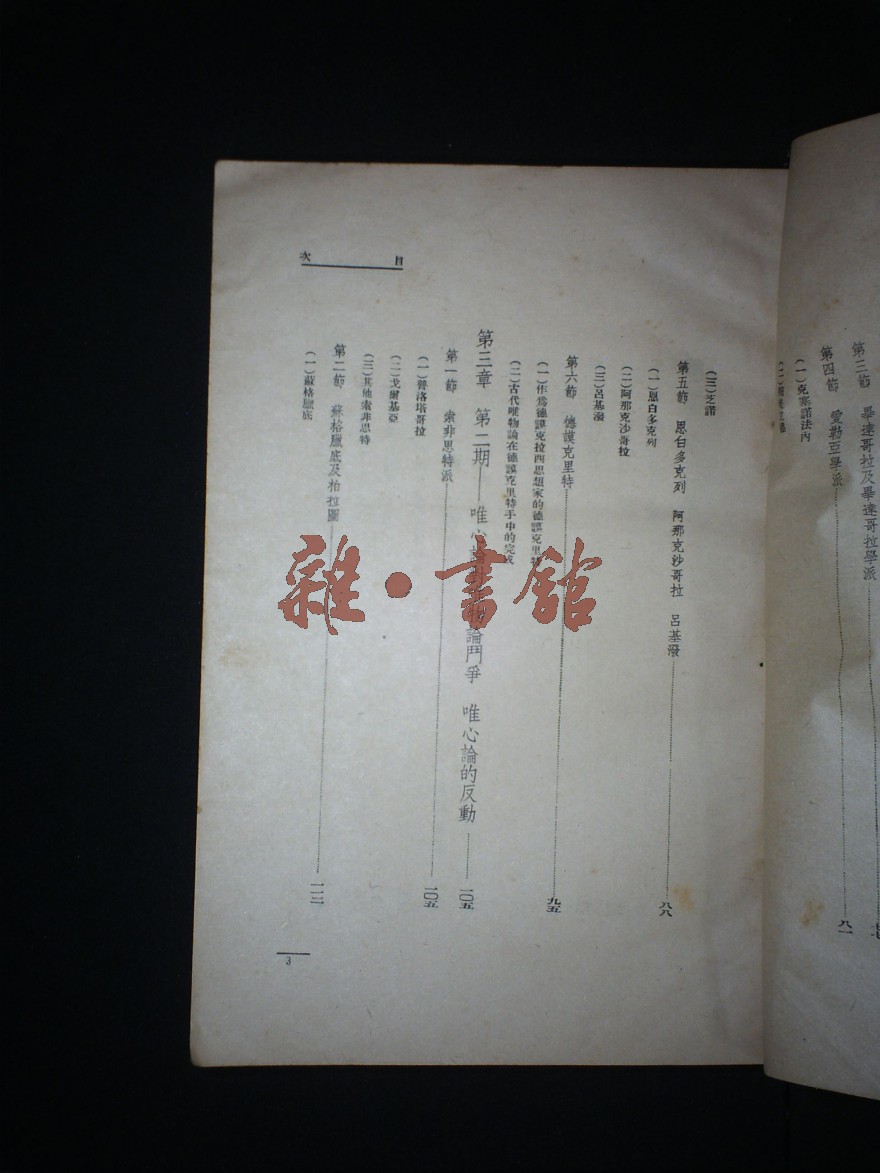 第三節 畢達哥拉及畢達哥拉學派
第四節 愛勒亞學派 八一
(一)克塞諾法內
目次
(三)芝諾
第五節 恩白多克列 阿那克沙哥拉 呂基潑 八八
(一)恩白多克列
(二)阿那克沙哥拉
(三)呂基潑
第六節 德謨克里特 九五
(一)作爲德謨克拉西思想家的德謨克里特
(二)古代唯物論在德謨克里特手中的完成
第三章 第二期——唯心論對唯物論鬥爭 唯心論的反動 一〇五
第一節 索非思特派 一〇五
(一)普洛塔哥拉
(二)戈爾基亞
(三)其他索非思特
第二節 蘇格臘底及柏拉圖 一一二
(一)蘇格臘底
3
雜·書館